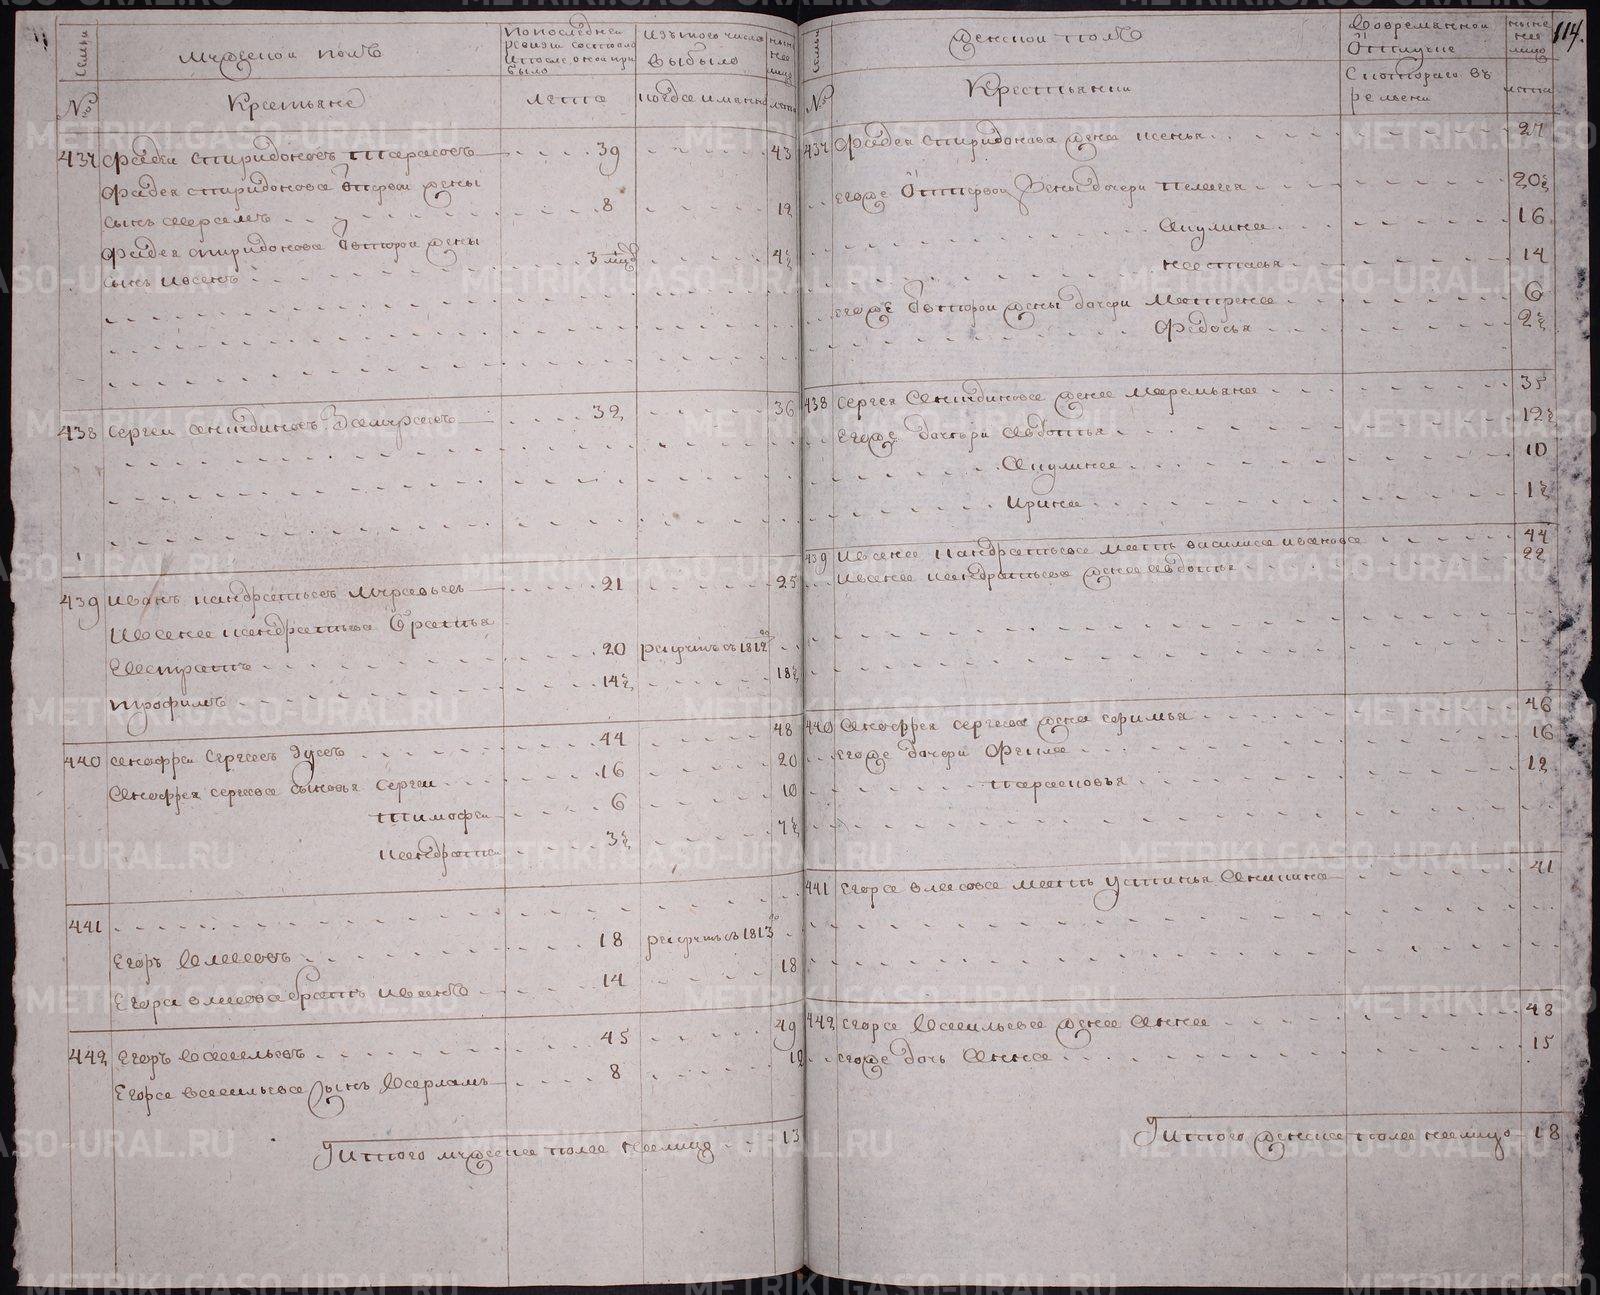 Семьи
Мужеской полъ
По последней ревизии состояло и после оной прибыло
Изъ того числа выбыло
ныне налицо
№
Крестьяне
лета
когда именно
лета
437 Фадеи Спиридоновъ Тарасовъ 39 43
Фадея Спиридонова отпервои жены
сынъ 8 12
Фадея Спиридонова отвторои жены
сынъ Иванъ 3 4½
438 Сергеи 32 36
439 Иванъ Кандратьевъ Муравьевъ 21 25
Ивана Кандратьева братья
Евстратъ 20 рекрутъ въ 1812го
Трофимъ 14½ 18½
440 Анофреи Сергеевъ Гусевъ 44 48
Анофрея Сергеева сыновья Сергеи 16 20
Тимофеи 6 10
Кандратеи 3½ 7½
441
Егоръ Власовъ 18 рекрутъ въ 1813го
Егора Власова братъ Иванъ 14 18
442 Егоръ Васильевъ 45 49
Егора Васильева сынъ Варламъ 8 12
Итого мужеска пола налицо 13
114.
Семьи
Женскои полъ
Вовременной отлучке
ныне налицо
№
Крестьянки
С котораго времени
лета
437 Фадея Спиридонова жена Ксенья 27
Егоже отпервои жены дочери Пелагея 20½
Акулина 16
Настасья 14
Егоже отвторои жены дочери Матрена 6
Федосья 2½
438 Сергея жена Маремьяна 35
Егоже дочери Авдотья 12½
Акулина 10
Ирина 1½
439 Ивана Кандратьева мать Василиса Иванова 44
Ивана Кандратьева жена Авдотья 22
440 Анофрея Сергеева жена Афимья 46
Егоже дочери 16
Парасковья 12
441 Егора Власова мать Устинья Аникина 41
442 Егора Васильева жена Анна 48
Егоже дочь Анна 15
Итого женска пола налицо 18
METRIKI.GASO-URAL.RU